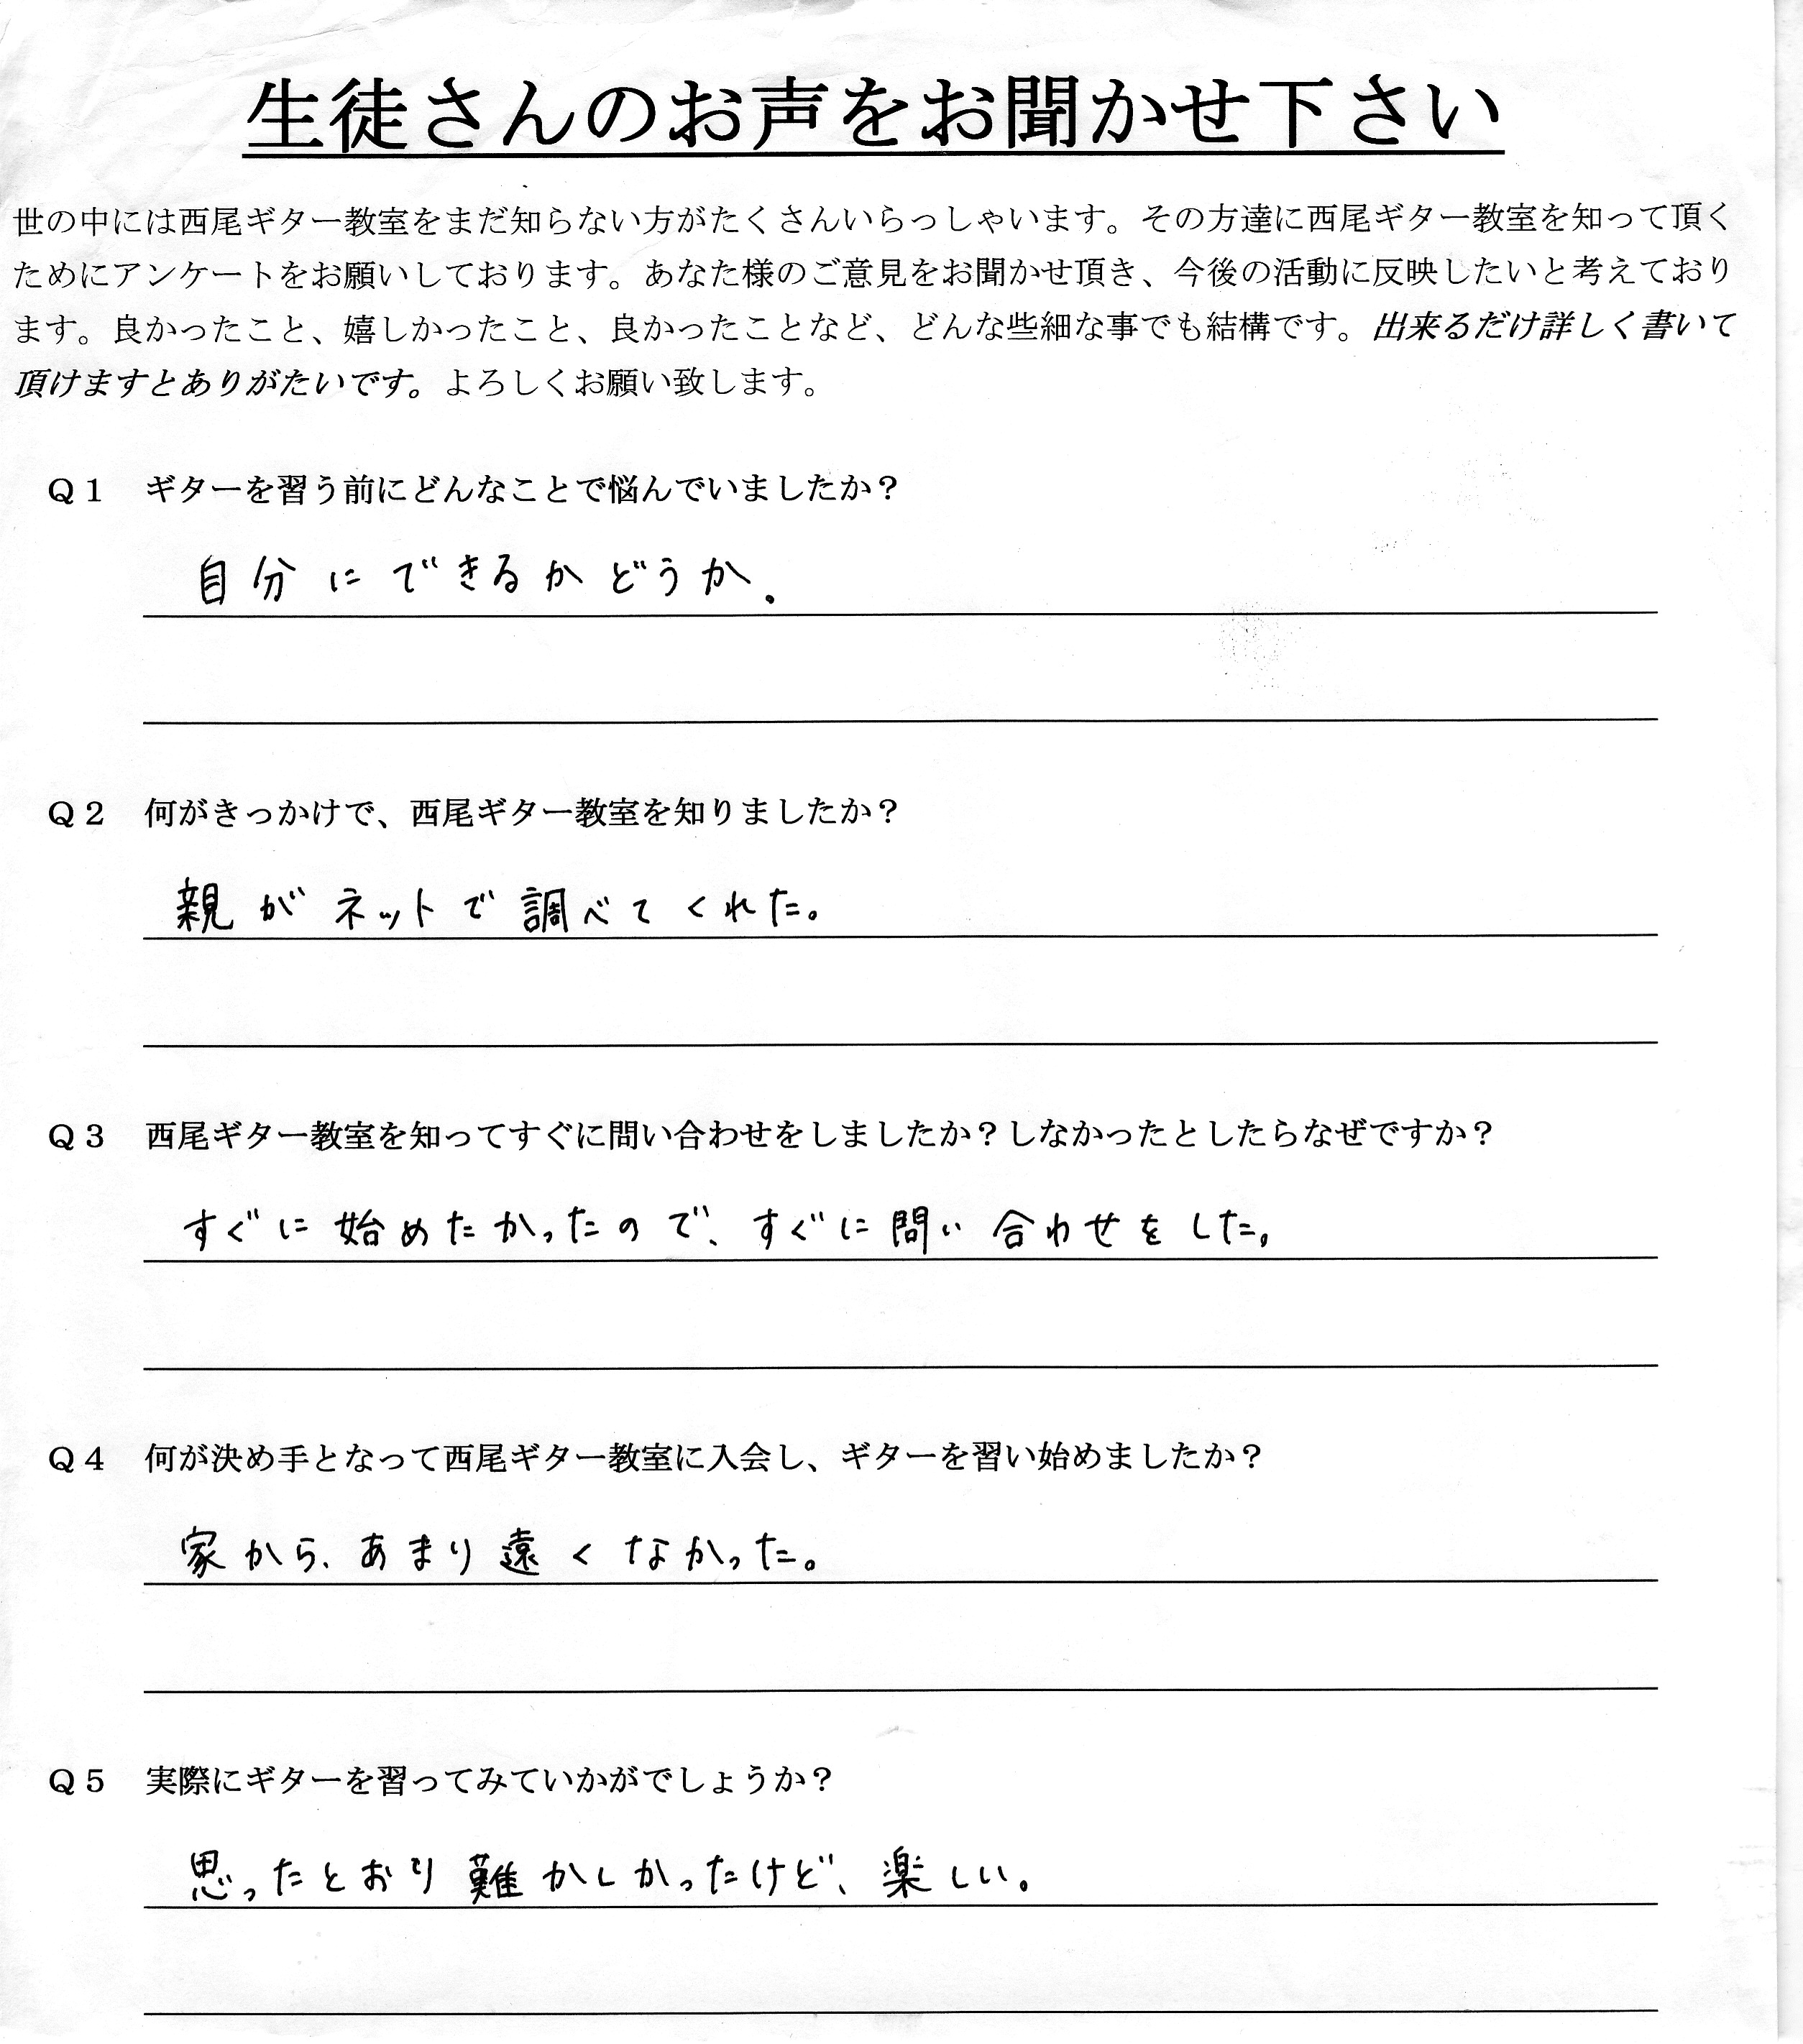 生徒さんのお声をお聞かせ下さい
世の中には西尾ギター教室をまだ知らない方がたくさんいらっしゃいます。その方達に西尾ギター教室を知って頂く
ためにアンケートをお願いしております。あなた様のご意見をお聞かせ頂き、今後の活動に反映したいと考えており
ます。良かったこと、嬉しかったこと、良かったことなど、どんな些細な事でも結構です。出来るだけ詳しく書いて
頂けますとありがたいです。よろしくお願い致します。
Q1 ギターを習う前にどんなことで悩んでいましたか？
自分にできるかどうか.
Q2 何がきっかけで、西尾ギター教室を知りましたか？
親がネットで調べてくれた。
Q3 西尾ギター教室を知ってすぐに問い合わせをしましたか？しなかったとしたらなぜですか？
すぐに始めたかったので、すぐに問い合わせをした。
Q4 何が決め手となって西尾ギター教室に入会し、ギターを習い始めましたか？
家から、あまり遠くなかった。
Q5 実際にギターを習ってみていかがでしょうか？
思ったとおり難かしかったけど、楽しい。